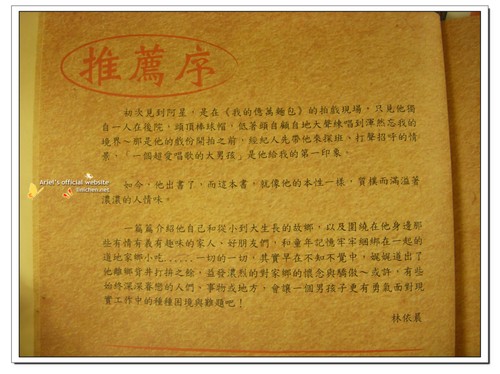 推薦序
初次見到阿星，是在《我的億萬麵包》的拍戲現場，只見他獨
自一人在後院，頭頂棒球帽，低著頭自顧自地大聲練唱到渾然忘我的
境界～那是他的戲份開拍之前，經紀人先帶他來探班、打聲招呼的情
景，「一個超愛唱歌的大男孩」是他給我的第一印象。
如今，他出書了，而這本書，就像他的本性一樣，質樸而滿溢著
濃濃的人情味。
一篇篇介紹他自己和從小到大生長的故鄉，以及圍繞在他身邊那
些有情有義有趣味的家人、好朋友們，和童年記憶牢牢綑綁在一起的
道地家鄉小吃......一切的一切，其實早在不知不覺中，娓娓道出了
他離鄉背井打拚之餘，益發濃烈的對家鄉的懷念與驕傲～或許，有些
始終深深眷戀的人們、事物或地方，會讓一個男孩子更有勇氣面對現
實工作中的種種困境與難題吧！
林依晨
Ariel's official website
linichen.net